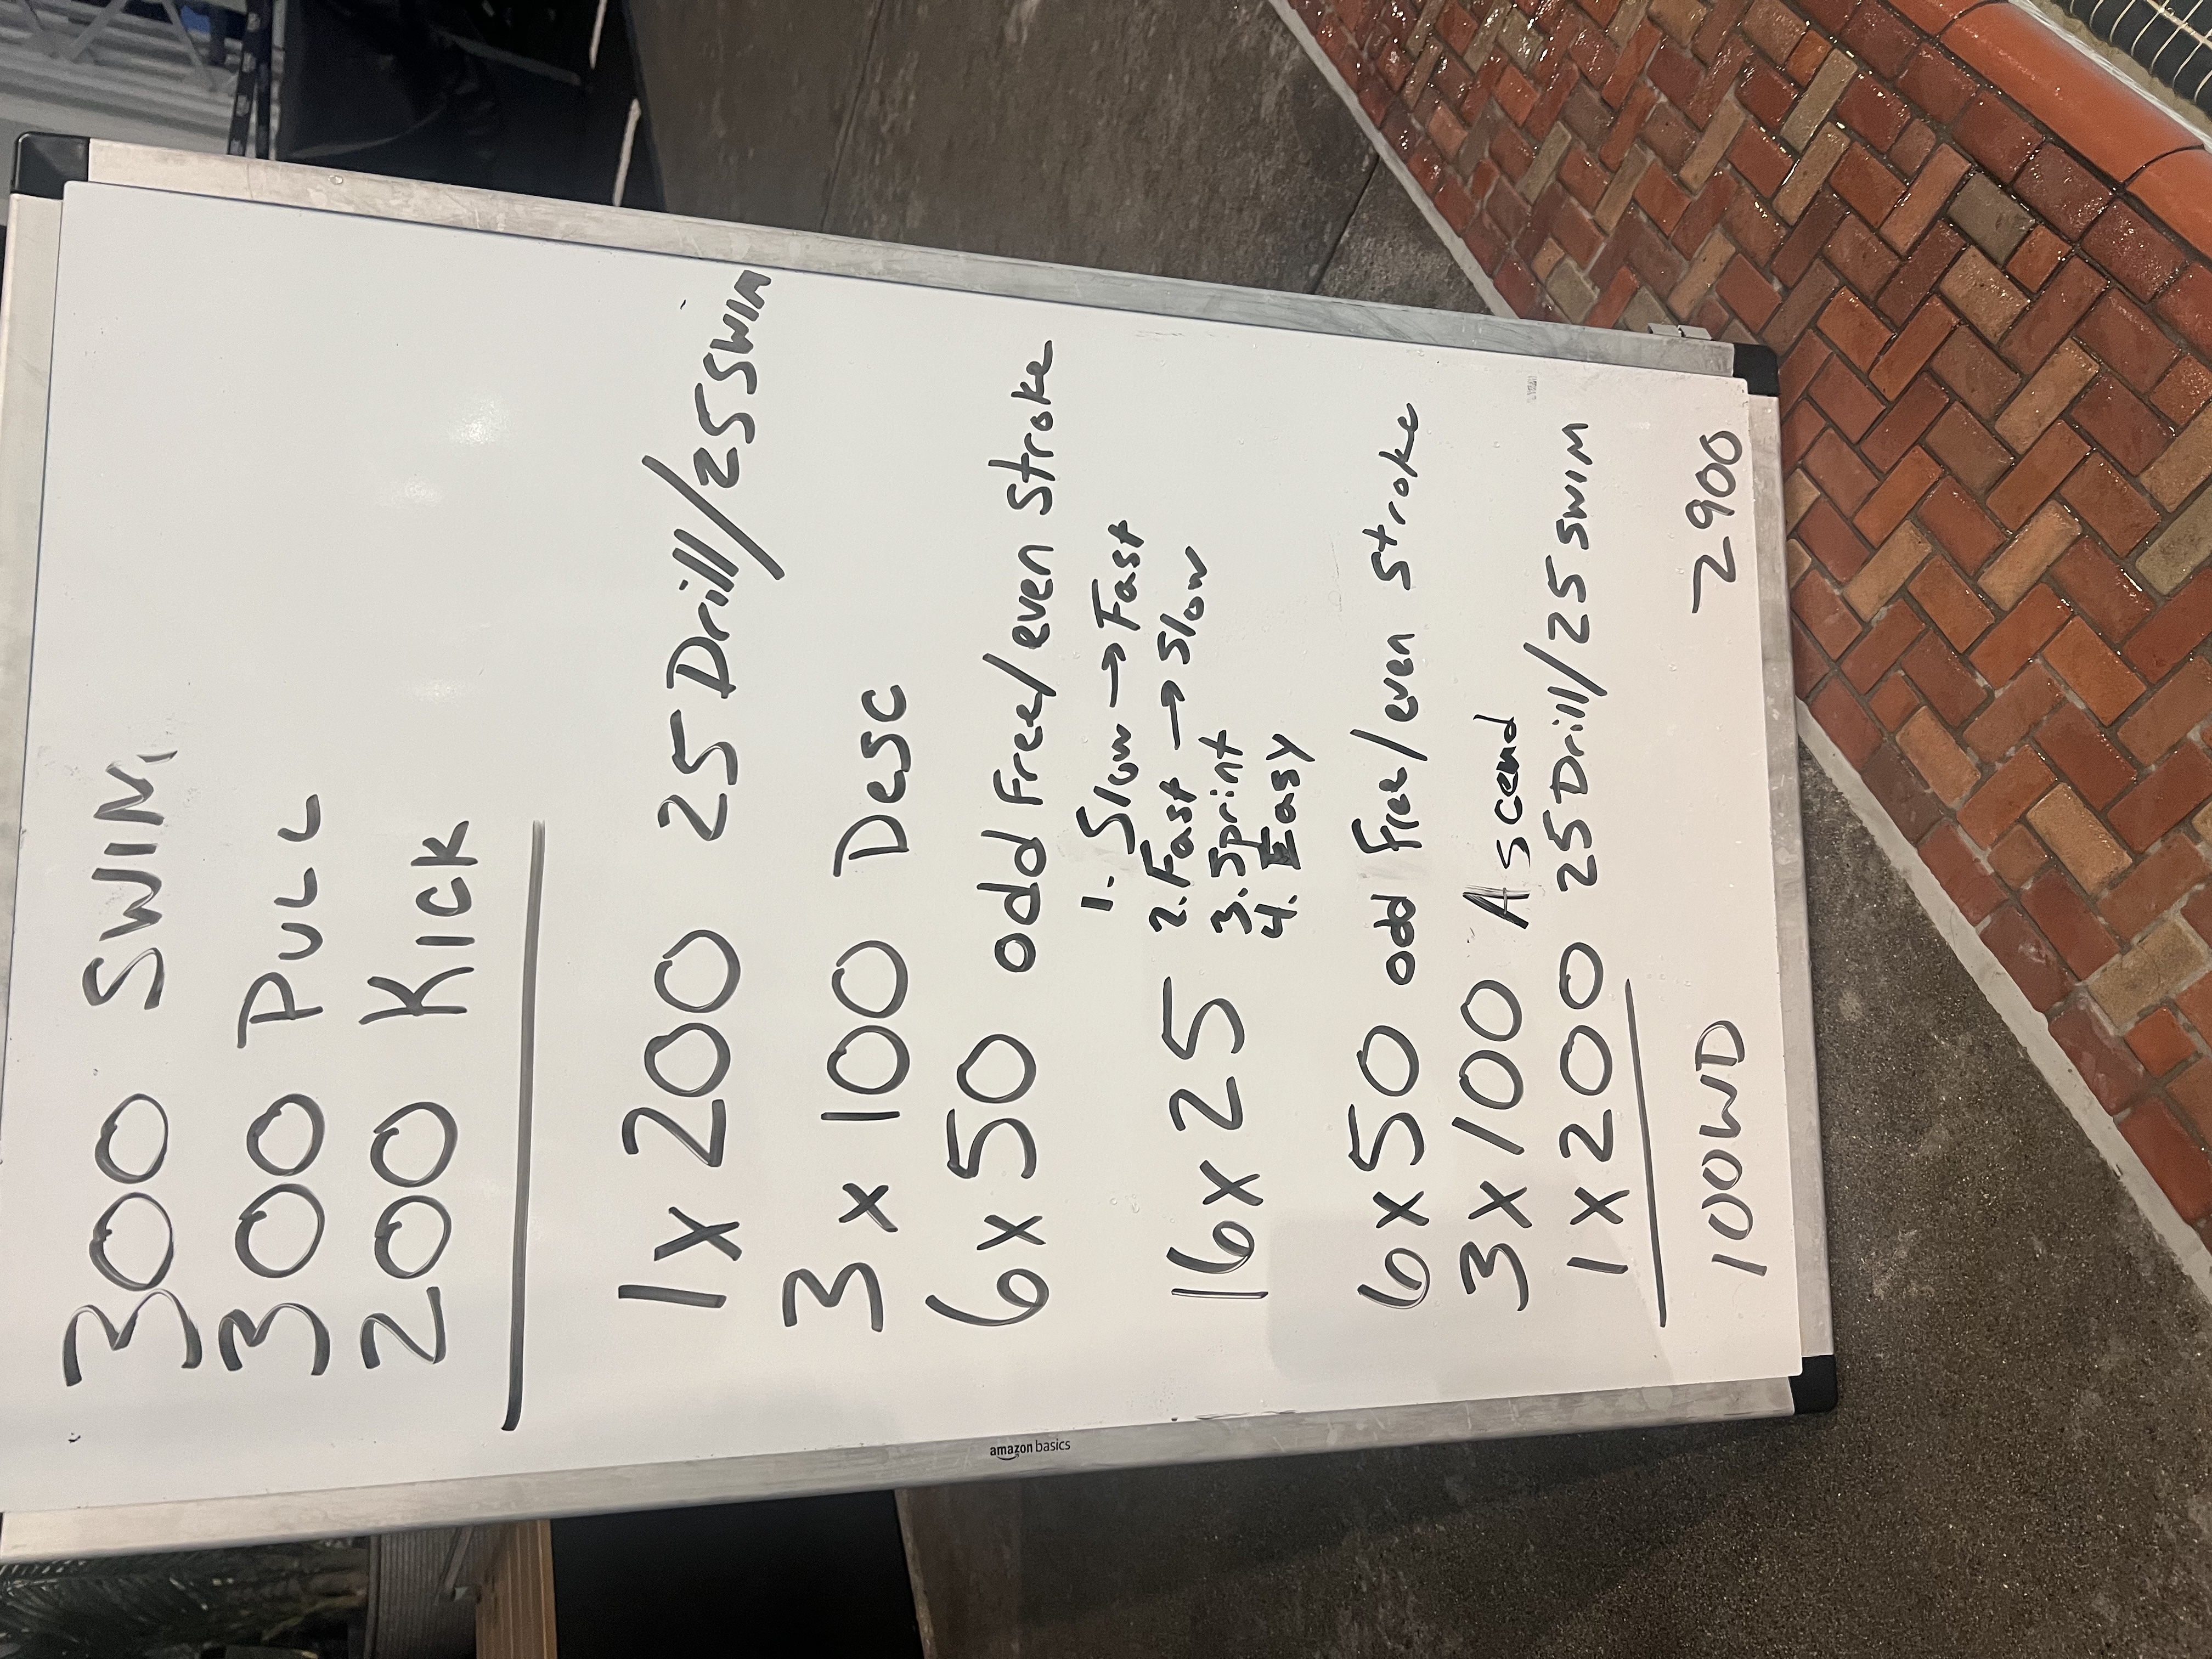 300 SWIM
300 PULL
200 KICK
1 x 200 25 Drill/25 SWIM
3 x 100 Desc
6 x 50 odd Free/even Stroke
1. Slow → Fast
2. Fast → Slow
16 x 25 3. Sprint
4. Easy
6 x 50 odd Free/even stroke
3 x 100 Ascend
1 x 200 25 Drill/25 SWIM
100 WD 2900
amazon basics